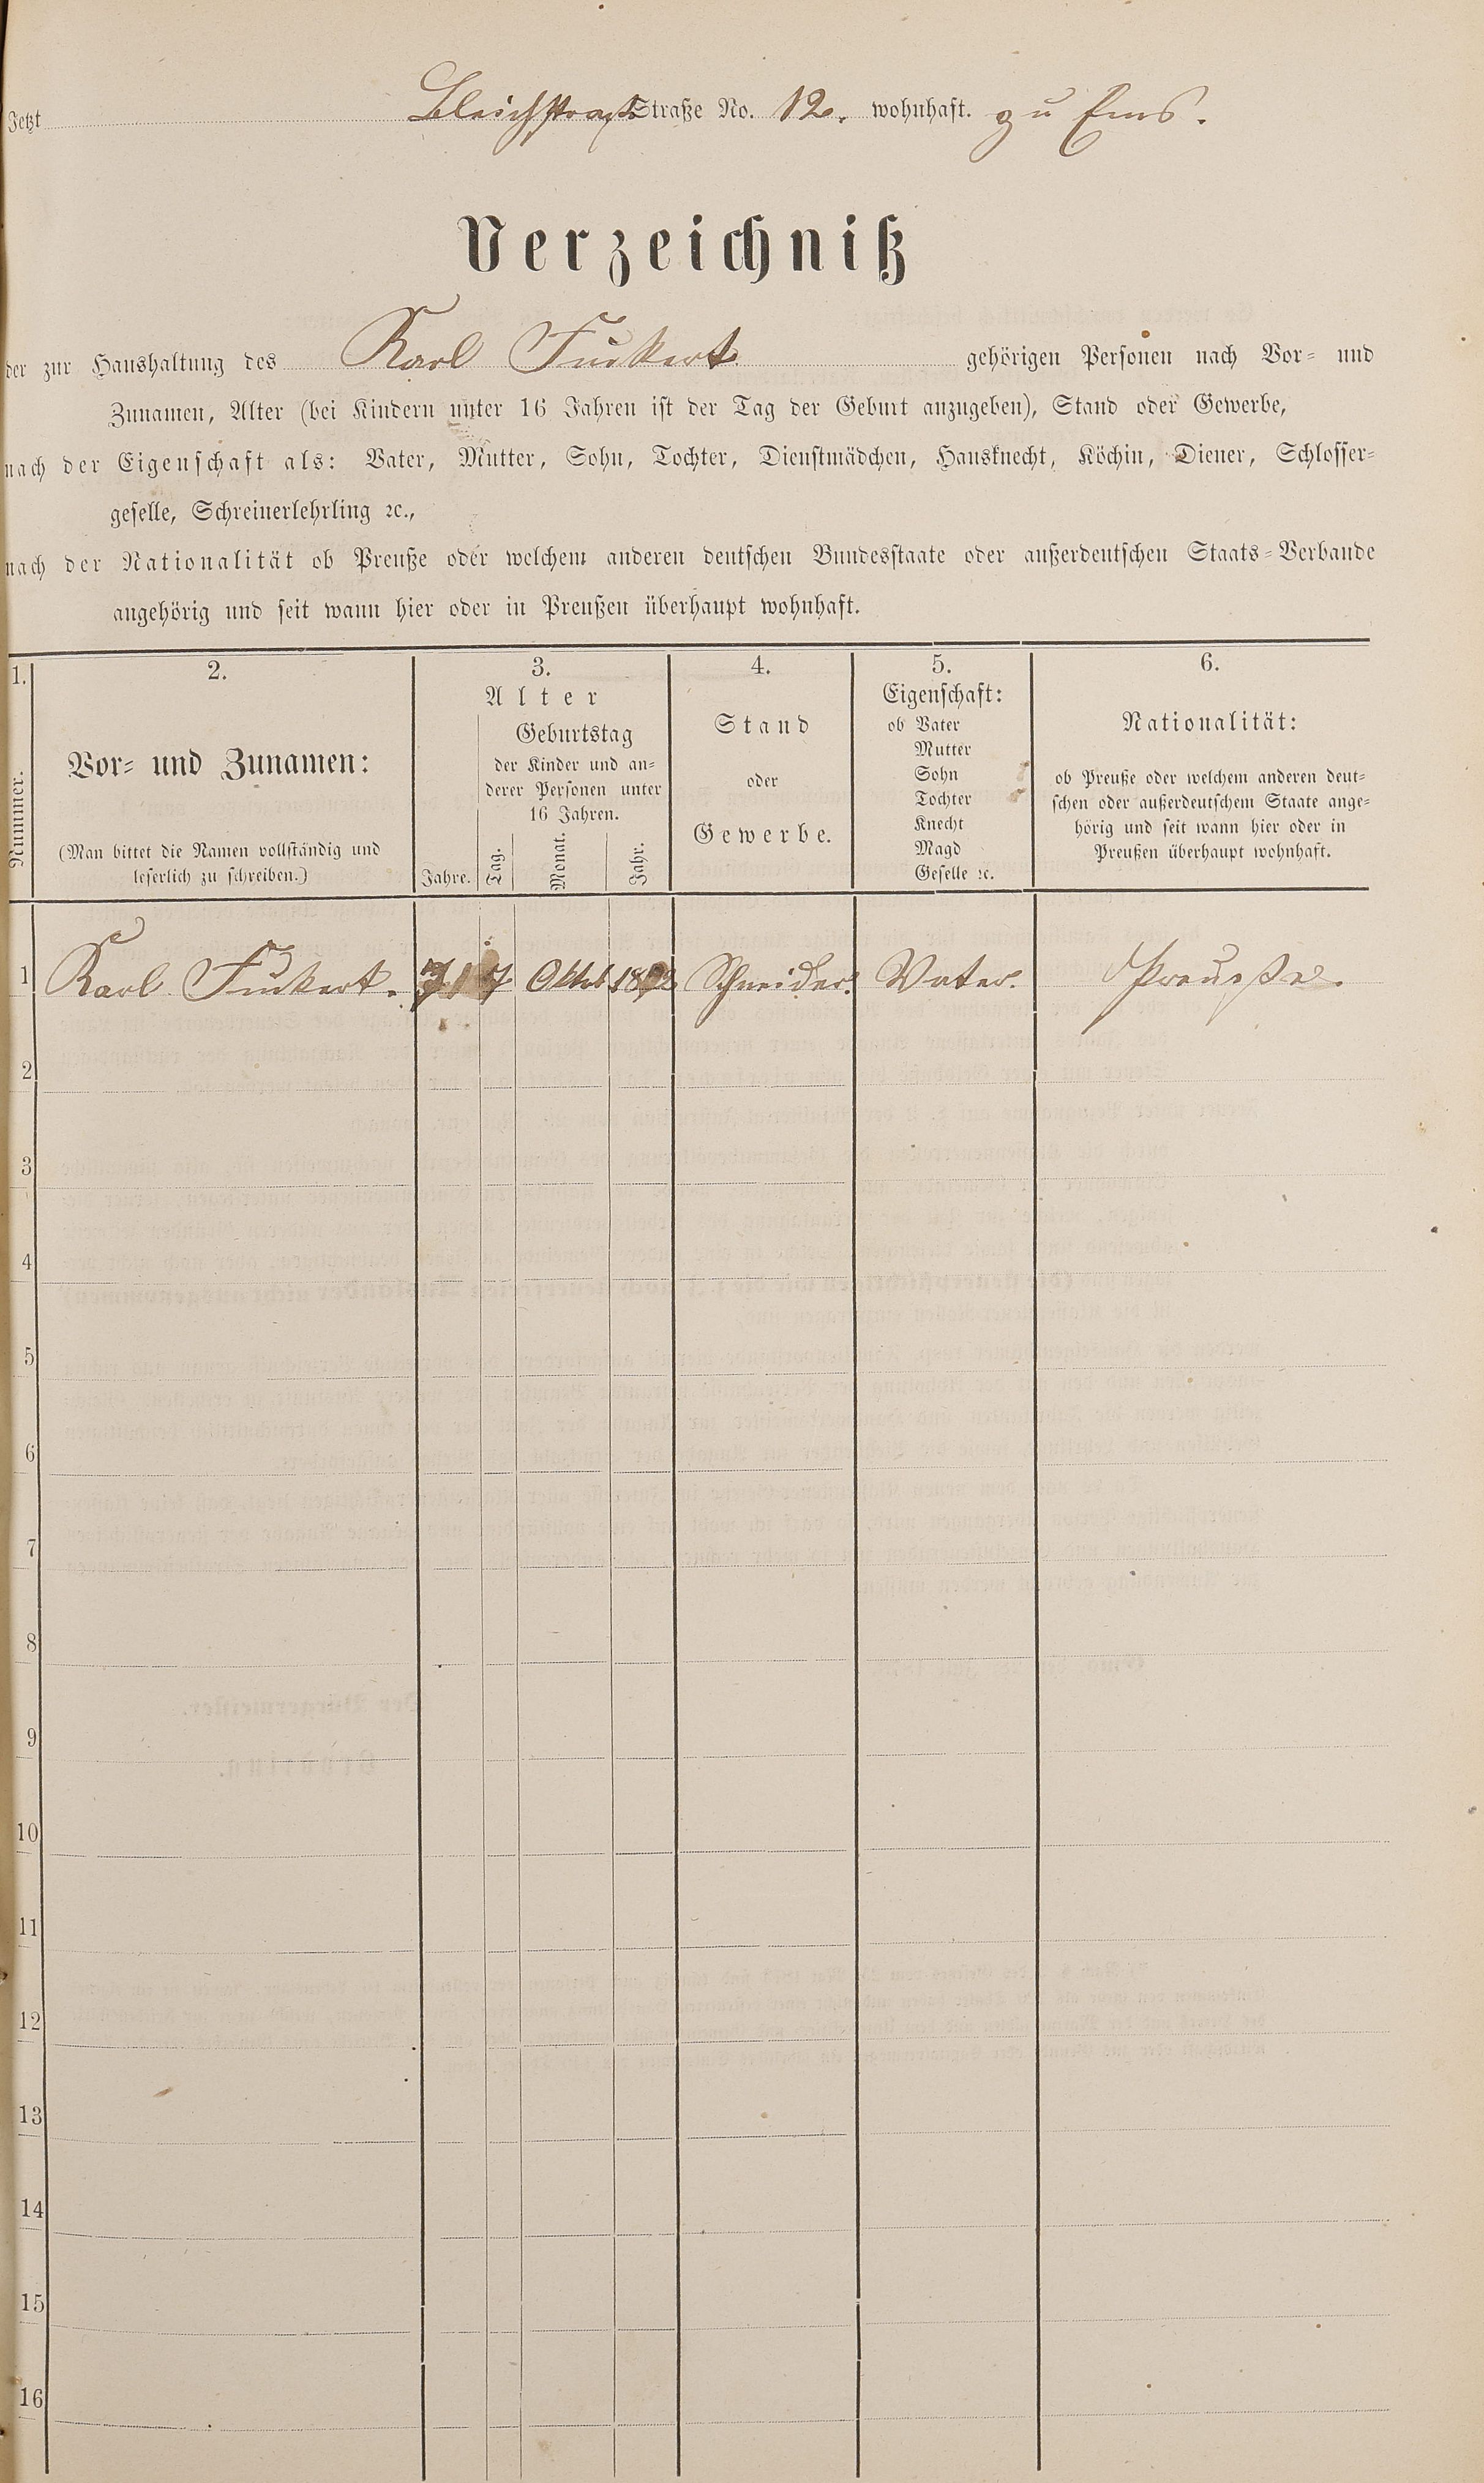 Jetzt Bleichstraße Straße No. 12. wohnhaft. zu Ems.
Verzeichniß
der zur Haushaltung des Karl Fuckert gehörigen Personen nach Vor- und
Zunamen, Alter (bei Kindern unter 16 Jahren ist der Tag der Geburt anzugeben), Stand oder Gewerbe,
nach der Eigenschaft als: Vater, Mutter, Sohn, Tochter, Dienstmädchen, Hausknecht, Köchin, Diener, Schlosser-
geselle, Schreinerlehrling ꝛc.,
nach der Nationalität ob Preuße oder welchem anderen deutschen Bundesstaate oder außerdeutschen Staats-Verbande
angehörig und seit wann hier oder in Preußen überhaupt wohnhaft.
1.
Nummer.
2.
Vor- und Zunamen:
(Man bittet die Namen vollständig und
leserlich zu schreiben.)
3.
Alter
Jahre.
Geburtstag
der Kinder und an-
derer Personen unter
16 Jahren.
Tag. Monat. Jahr.
4.
Stand
oder
Gewerbe.
5.
Eigenschaft:
ob Vater
Mutter
Sohn
Tochter
Knecht
Magd
Geselle ꝛc.
6.
Nationalität:
ob Preuße oder welchem anderen deut-
schen oder außerdeutschem Staate ange-
hörig und seit wann hier oder in
Preußen überhaupt wohnhaft.
1 Karl Fuckert. 7 Oktob. Schneider. Vater. Preuße.
2
3
4
5
6
7
8
9
10
11
12
13
14
15
16